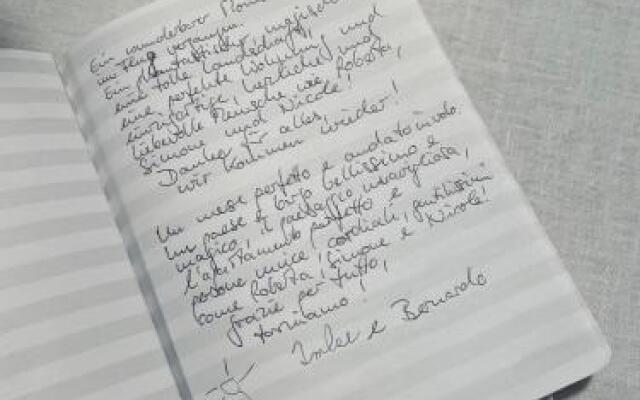 Ein wunderbarer Mona
im Flug vergangen.
Ein phantastischer magischer
eine tolle Landschaft,
eine perfekte Wohnung und
einzigartige, herzliche und
liebevolle Menschen wie Roberta,
Simone und Nicole!
Danke für alles,
wir kommen wieder!
Un mese perfetto e andato in volo.
Un paese & borgo bellissimo e
magico, il paesaggio meravigliosa,
l'apartamento perfetto e
persone unice, cordiali, gentilissimi
come Roberta, Simone e Nicole!
Grazie per tutto,
torniamo!
e Bernardo